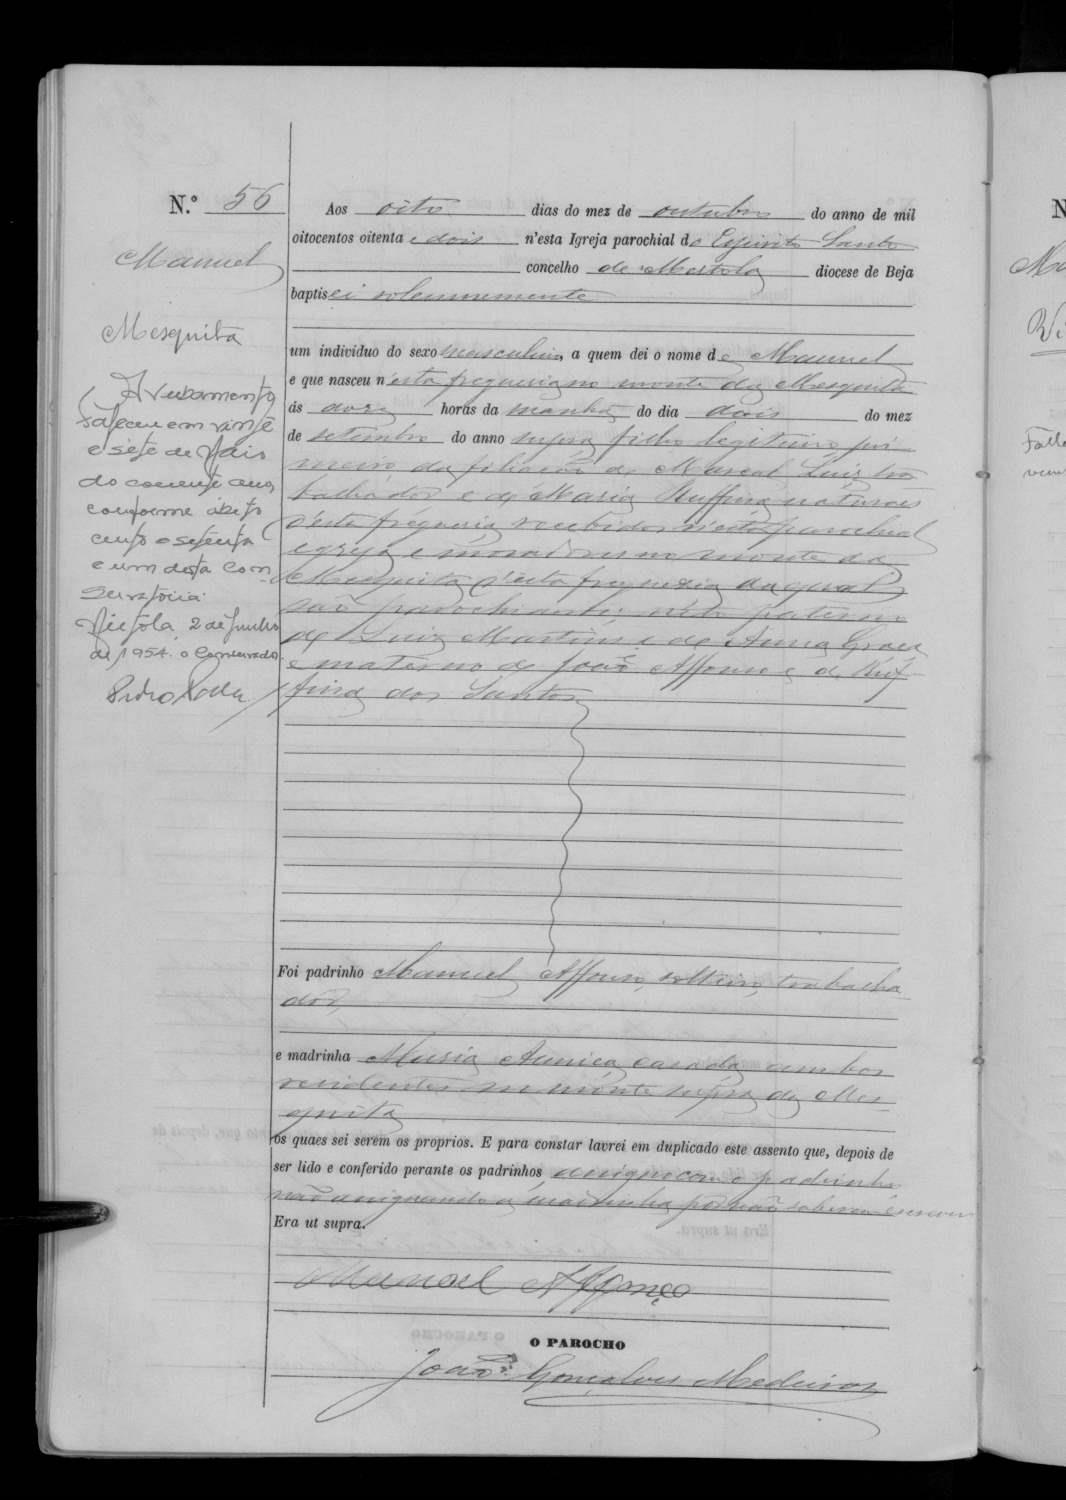 N.º 56
Manuel
Mesquita
Averbamento
Faleceu em vinte
e sete de Maio
do corrente ano,
conforme assento
cento e setenta
e um desta Con-
servatória.
Mértola, 2 de Junho
de 1954. o Conservador
Aos oito dias do mez de outubro do anno de mil
oitocentos oitenta e dois n'esta Igreja parochial do Espirito Santo
concelho de Mertola diocese de Beja
baptisei solemnemente
um individuo do sexo masculino, a quem dei o nome de Manuel
e que nasceu n'esta freguesia no monte da Mesquita
ás doze horas da manhã do dia dois do mez
de setembro do anno supra filho legitimo pri
meiro da filiação de Marcal Luiz tra
balhador e de Maria Ruffina naturaes
d'esta freguesia, recebidos n'esta parochial
egreja e moradores no monte da
Mesquita d'esta freguesia da qual
são parochianos; neto paterno
de Luiz Martins e de Anna Graça
e materno de João Affonso e de Ruf
fina dos Santos
Foi padrinho Manuel Affonso, solteiro, trabalha
dor,
e madrinha Maria Annica, casada, ambos
residentes no monte supra da Mes-
quita
os quaes sei serem os proprios. E para constar lavrei em duplicado este assento que, depois de
ser lido e conferido perante os padrinhos, assigno com o padrinho
não assignando a madrinha por não saber escrever
Era ut supra.
Manoel Affonço
O PAROCHO
João Gonçalves Medeiros